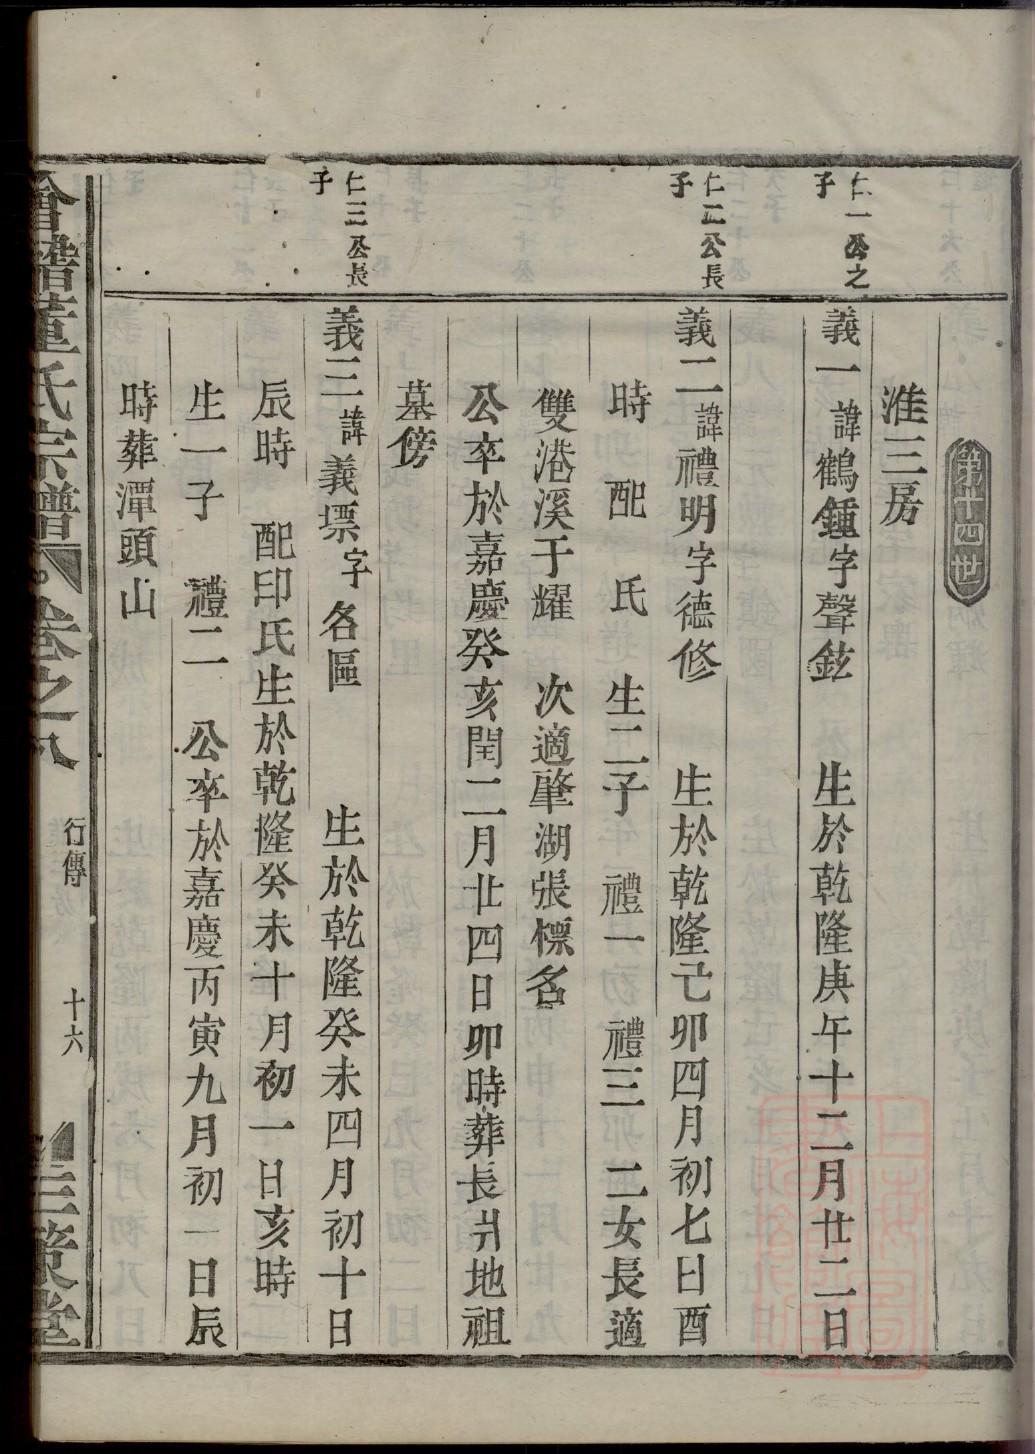 第廿四世
淮三房
仁一公之
子
義一諱鶴鍾字聲鉉 生於乾隆庚午十二月廿二日
仁二公長
子
義二諱禮明字德修 生於乾隆己卯四月初七日酉
時 配 氏 生二子 禮一 禮三 二女長適
雙港溪于耀 次適肇湖張標名
公卒於嘉慶癸亥閏二月廿四日卯時葬長爿地祖
墓傍
仁三公長
子
義三諱義墂字名區 生於乾隆癸未四月初十日
辰時 配印氏生於乾隆癸未十月初一日亥時
生一子 禮二 公卒於嘉慶丙寅九月初一日辰
時葬潭頭山
會稽董氏宗譜 卷之八 行傳 十六 三策堂